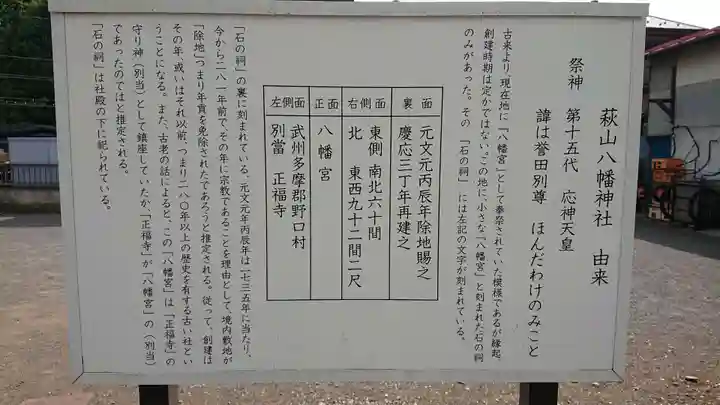 萩山八幡神社　由来
祭神　第十五代　応神天皇
諱は誉田別尊　ほんだわけのみこと
古来より、現在地に「八幡宮」として奉祭されていた模様であるが縁起、
創建時期は定かではない。この地に、小さな「八幡宮」と刻まれた石の祠
のみがあった。その「石の祠」には左記の文字が刻まれている。
裏面
元文元丙辰年除地賜之
慶応三丁年再建之
右側面
東側　南北六十間
北　東西九十二間二尺
正面
八幡宮
左側面
武州多摩郡野口村
別當　正福寺
「石の祠」の裏に刻まれている、元文元年丙辰年は一七三五年に当たり、
今から二八一年前で、その年に宗教であることを理由として、境内敷地が
「除地」つまり年貢を免除されたであろうと推定される。従って、創建は
その年、或いはそれ以前、つまり二八〇年以上の歴史を有する古い社とい
うことになる。また、古老の話によると、この「八幡宮」は「正福寺」の
守り神（別当）として鎮座していたか、「正福寺」が「八幡宮」の（別当）
であったのではと推定される。
「石の祠」は社殿の下に祀られている。